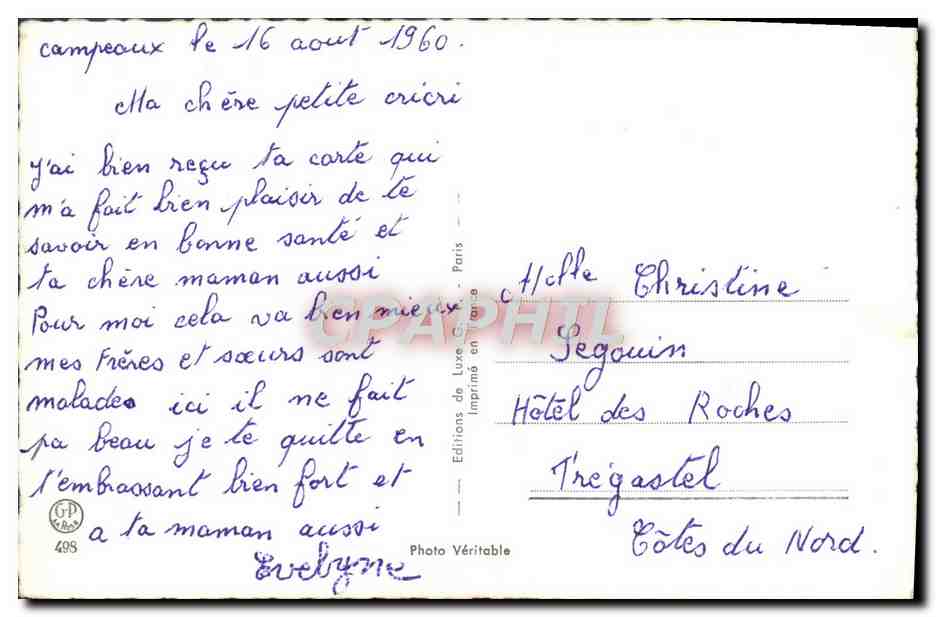 campeaux le 16 aout 1960.
Ma chère petite cricri
J'ai bien reçu ta carte qui
m'a fait bien plaisir de te
savoir en bonne santé et
ta chère maman aussi
Pour moi cela va bien mieux
mes Frères et sœurs sont
malades ici il ne fait
pa beau je te quitte en
t'embrassant bien fort et
a ta maman aussi
Evelyne
G-P
498
Photo Véritable
Editions de Luxe G.P. - Paris
Imprimé en France
CPAPHIL
Mlle Christine
Segouin
Hôtel des Roches
Trégastel
Côtes du Nord.